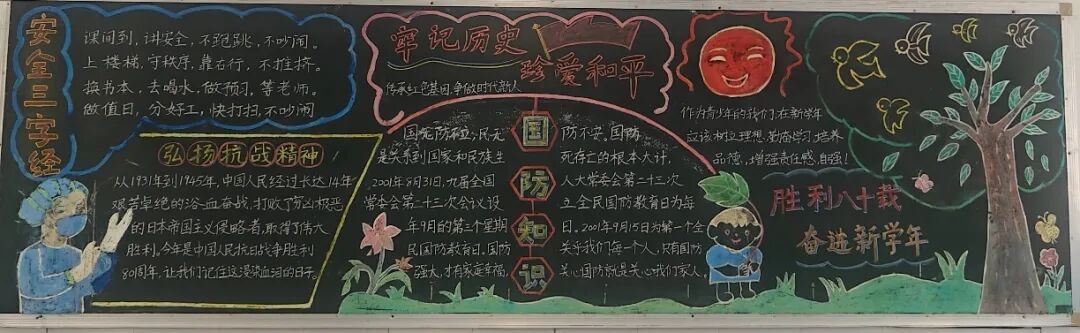 安全三字经
课间到，讲安全，不跑跳，不吵闹。
上楼梯，守秩序，靠右行，不推挤。
换书本，去喝水，做预习，等老师。
做值日，分好工，快打扫，不吵闹
弘扬抗战精神
从1931年到1945年，中国人民经过长达14年
艰苦卓绝的浴血奋战，打败了穷凶极恶
的日本帝国主义侵略者，取得了伟大
胜利。今年是中国人民抗日战争胜利
80周年，让我们记住这浸染血泪的日子。
牢记历史
珍爱和平
传承红色基因，争做时代新人
国防知识
国无防不立，民无防不安。国防
是关系到国家和民族生死存亡的根本大计，
2001年8月31日，九届全国人大常委会第二十三次
常委会第二十三次会议设立全民国防教育日为每
年9月的第三个星期日。2001年9月15日为第一个全
民国防教育日。国防关乎我们每一个人，只有国防
强大，才有家庭幸福，关心国防就是关心我们家人。
作为青少年的我们，在新学年
应该树立理想，勤奋学习，培养
品德，增强责任感，自强！
胜利八十载
奋进新学年